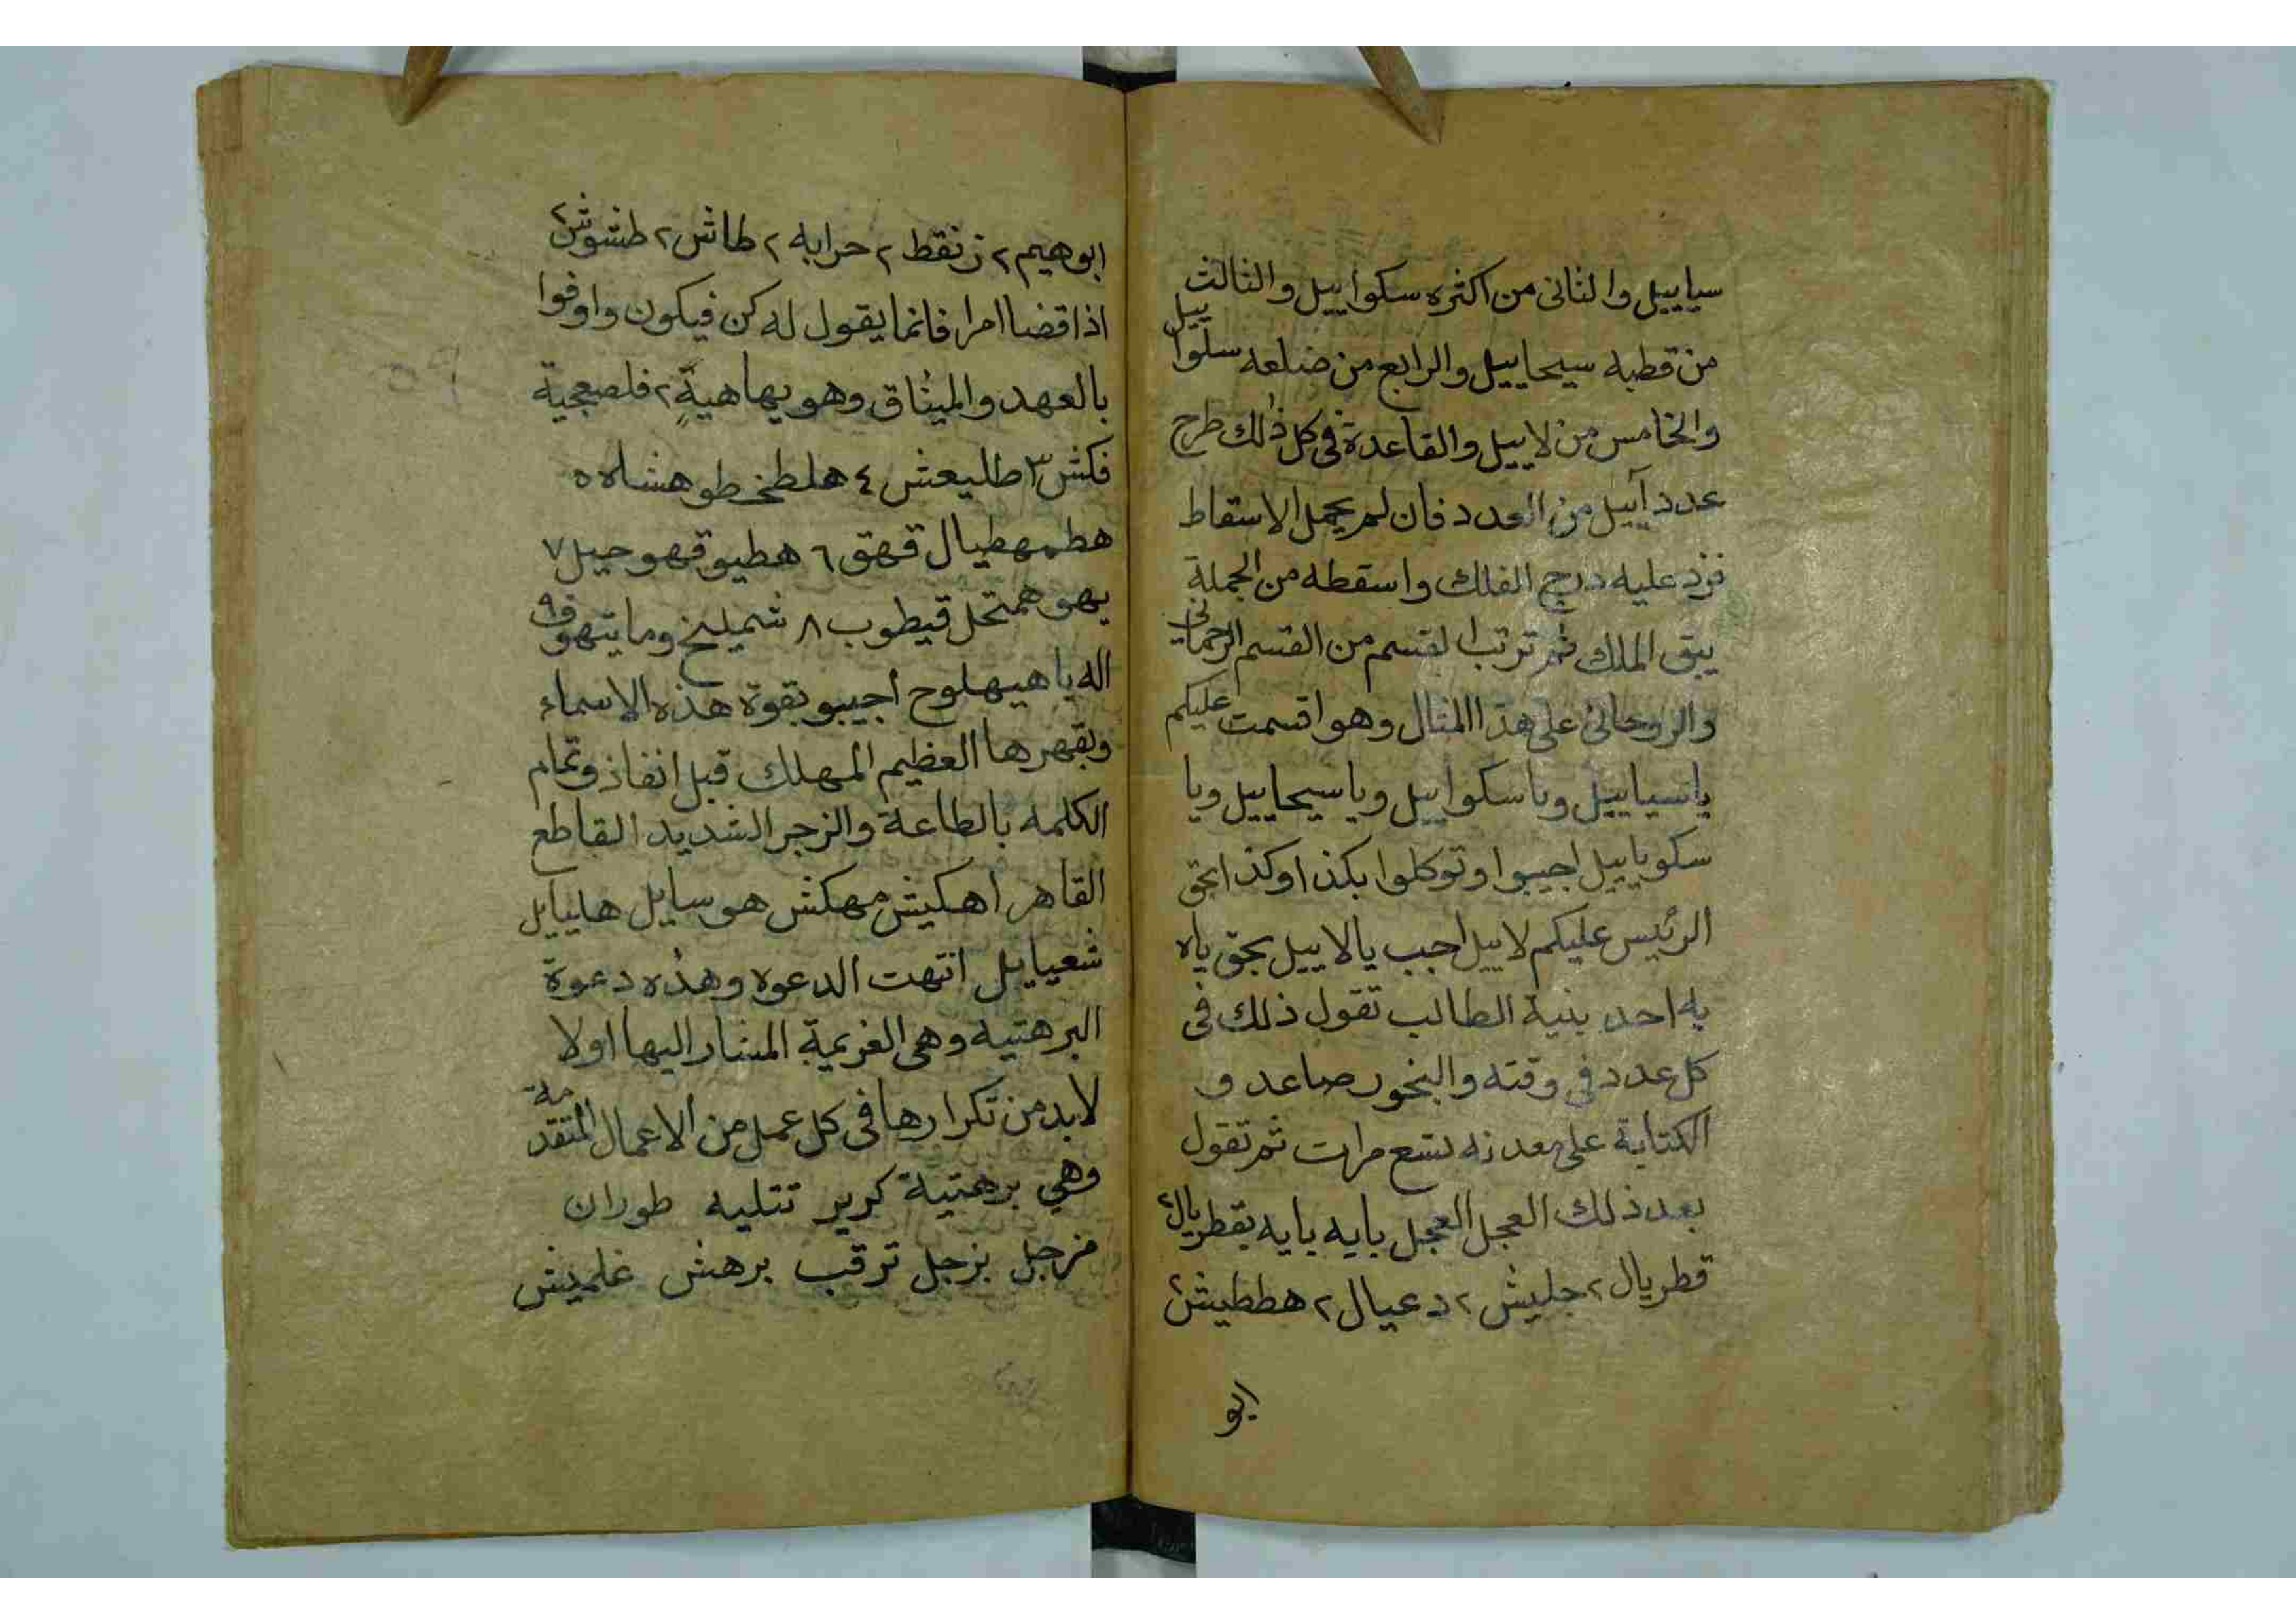 سياييل والثانى من اكثره سكواييل والثالث
من قطبه سيحاييل والرابع من ضلعه سلواييل
والخامس من لاييل والقاعدة فى كل ذلك طرح
عدد آييل من العدد فان لم يحمل الاسقاط
فزد عليه درج الفلك واسقطه من الجملة
يبق الملك ثم ترتب القسم من القسم الرحمانى
والروحانى على هذا المثال وهو اقسمت عليكم
ياسياييل وياسكواييل وياسيحاييل ويا
سكوياييل اجيبوا وتوكلوا بكذا وكذا بحق
الرئيس عليكم لاييل اجب يالاييل بحق ياه
يه احد بنية الطالب تقول ذلك فى
كل عدد فى وقته والبخور صاعد و
الكتابة على معدنه تسع مرات ثم تقول
بعد ذلك العجل العجل بايه بايه بقطريال٢
قطريال ٢ جليش ٢ دعيال ٢ هططيش٢
ابو
ابوهيم ٢ ز نقط ٢ حرابه ٢ طاش ٢ طشوش٢
اذا قضا امرا فانما يقول له كن فيكون واوفوا
بالعهد والميثاق وهو يهاهية ٢ فلصعجية
فكش ٣ طليعش ٤ هلطخ طوهشاه ٥
هطمهطيال قهق ٦ هطيو قهو حيل ٧
يهو همتحل قيطوب ٨ شميليخ وما يتهوف ٩
اله يا هيهلوح اجيبو بقوة هذه الاسماء
وبقهرها العظيم المهلك قبل انفاذ وتمام
الكلمه بالطاعة والزجر الشديد القاطع
القاهر اهكيش مهكش هو سايل هليايل
شعيايل انتهت الدعوه وهذه دعوة
البرهتيه وهى العزيمة المشار اليها اولا
لابد من تكرارها فى كل عمل من الاعمال المتقدمة
وهي برهتية كرير تتليه طوران
مزجل بزجل ترقب برهش غلمیش